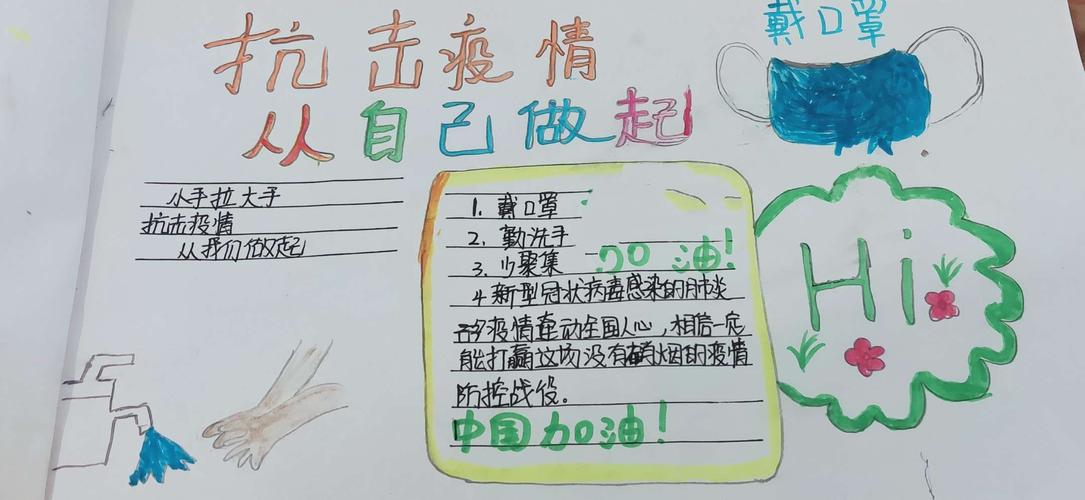 抗击疫情
戴口罩
从自己做起
小手拉大手
抗击疫情
从我们做起
1. 戴口罩
2. 勤洗手
3. 少聚集
加油!
4 新型冠状病毒感染的肺炎
疫情牵动全国人心,相信一定
能打赢这场没有硝烟的疫情
防控战役。
中国加油!
Hi